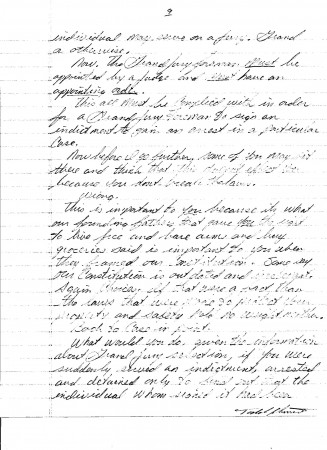 3
individual may serve on a jury. Grand
or otherwise.
Now, the Grand Jury foreman must be
appointed by a judge and must have an
appointing order.
This act must be complied with in order
for a Grand Jury foreman to sign an
indictment to gain an arrest in a particular
case.
Now before I go further, some of you may sit
there and think that this doesn't effect you
because you don't break the law.
Wrong.
This is important to you because its what
our founding fathers that gave you the right
to live free and bare arms and buy
groceries said is important to you when
they framed our Constitution. Some say
our Constitution is out dated and
Again wrong, if that were so than
the laws that were made to protect your
property and safety hold no weight either.
Back to case in point.
What would you do given the information
about Grand Jury selection, if you were
suddenly served an indictment, arrested
and detained only to find out that the
individual whom signed it had been